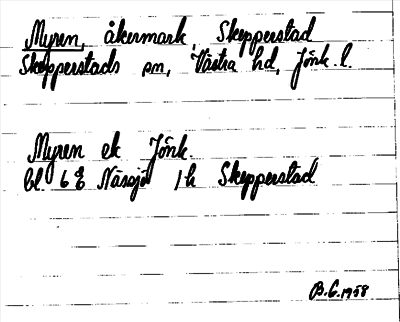 Myren, åkermark, Skepperstad
Skepperstads sn, Västra hd, Jönk. l.
Myren ek Jönk.
bl. 6 E Nässjö 1 h Skepperstad
B.G. 1958